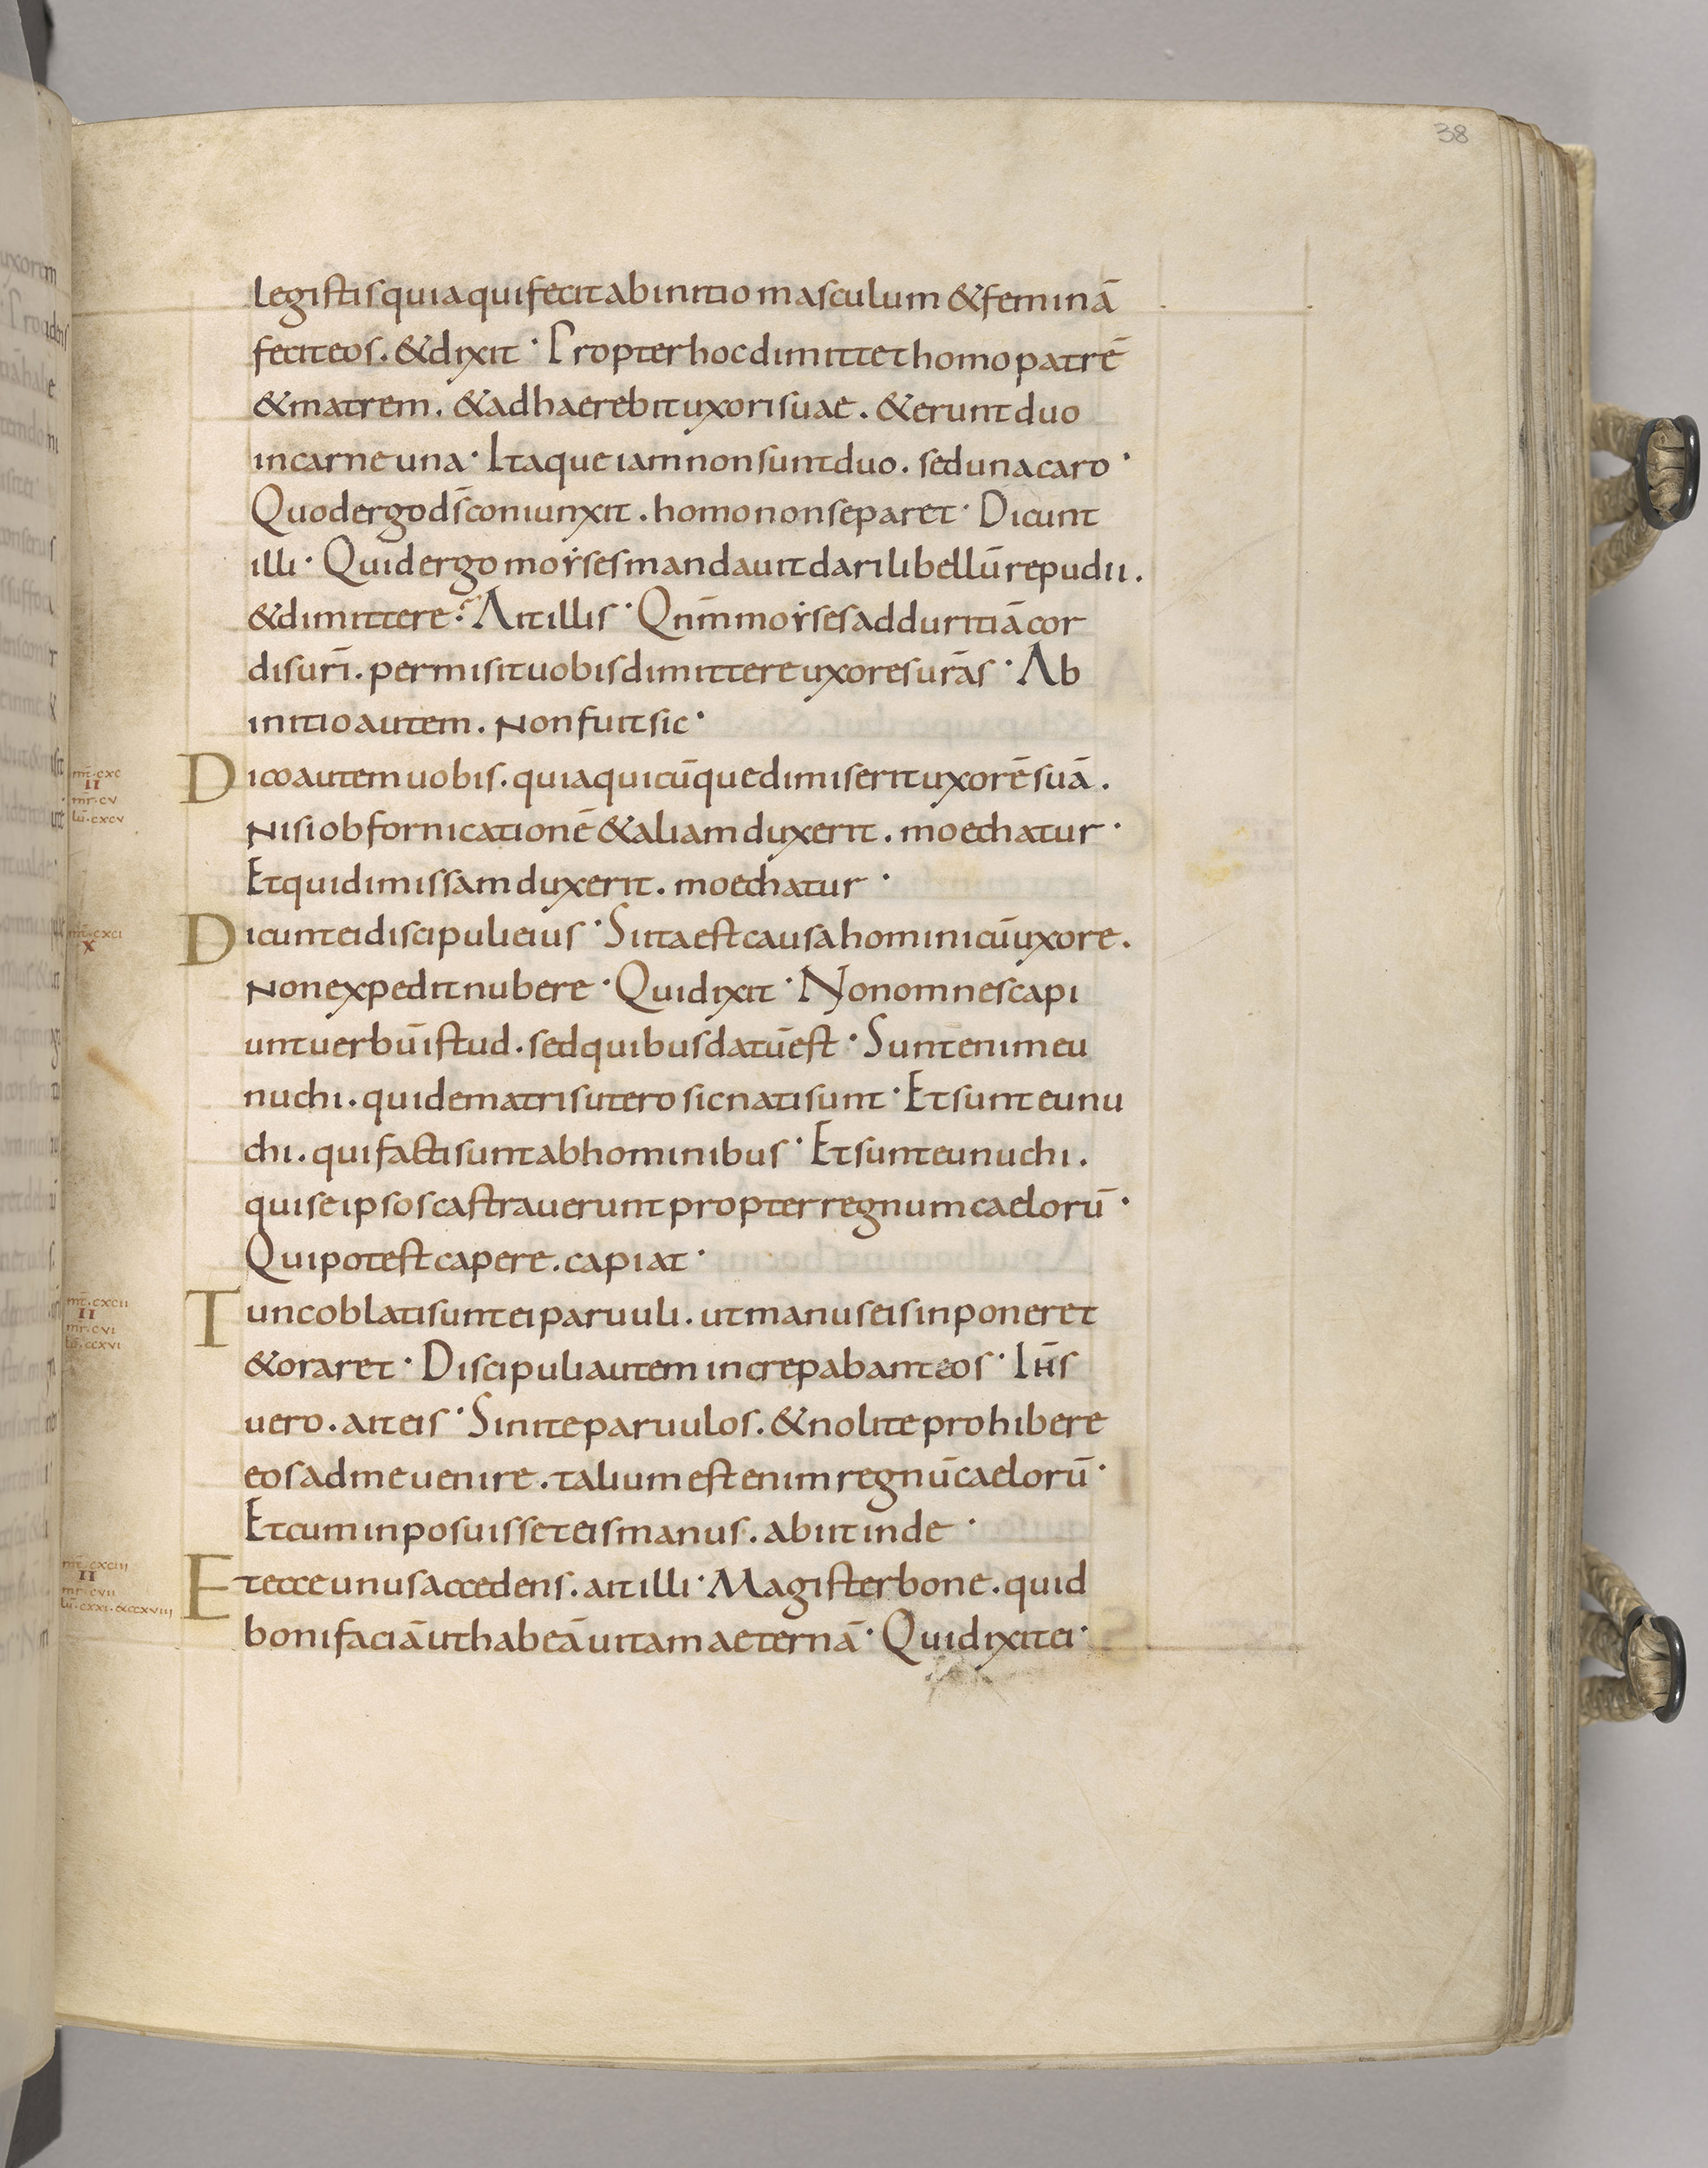 38
legistis quia qui fecit ab initio masculum & feminā
fecit eos. & dixit · Propter hoc dimittet homo patrē
& matrem. & adhaerebit uxori suae. & erunt duo
in carne una · Itaque iam non sunt duo. sed una caro ·
Quod ergo d̄s coniunxit. homo non separet · Dicunt
illi · Quid ergo moẏses mandauit dari libellū repudii.
& dimittere? Ait illis · Qnm̄ moẏses ad duritiā cor
dis ur̄i. permisit uobis dimittere uxores ur̄as · Ab
initio autem. non fuit sic ·
mt̄. cxc
II
mr̄. cv
lū. cxcv
Dico autem uobis. quia quicūque dimiserit uxorē suā.
nisi ob fornicationē & aliam duxerit. moechatur ·
Et qui dimissam duxerit. moechatur ·
mt̄. cxci
X
Dicunt ei discipuli eius · Si ita est causa homini cū uxore.
non expedit nubere · Qui dixit · Non omnes capi
unt uerbū istud. sed quibus datū est · Sunt enim eu
nuchi. qui de matris utero sic nati sunt · Et sunt eunu
chi. qui facti sunt ab hominibus · Et sunt eunuchi.
qui se ipsos castrauerunt propter regnum caelorū ·
Qui potest capere. capiat ·
mt̄. cxcii
II
mr̄. cvi
lū. ccxvi
Tunc oblati sunt ei paruuli. ut manus eis inponeret
& oraret · Discipuli autem increpabant eos · Ih̄s
uero. ait eis · Sinite paruulos. & nolite prohibere
eos ad me uenire. talium est enim regnū caelorū ·
Et cum inposuisset eis manus. abiit inde ·
mt̄. cxciii
II
mr̄. cvii
Et ecce unus accedens. ait illi · Magister bone. quid
boni faciā ut habeā uitam aeternā · Qui dixit ei ·